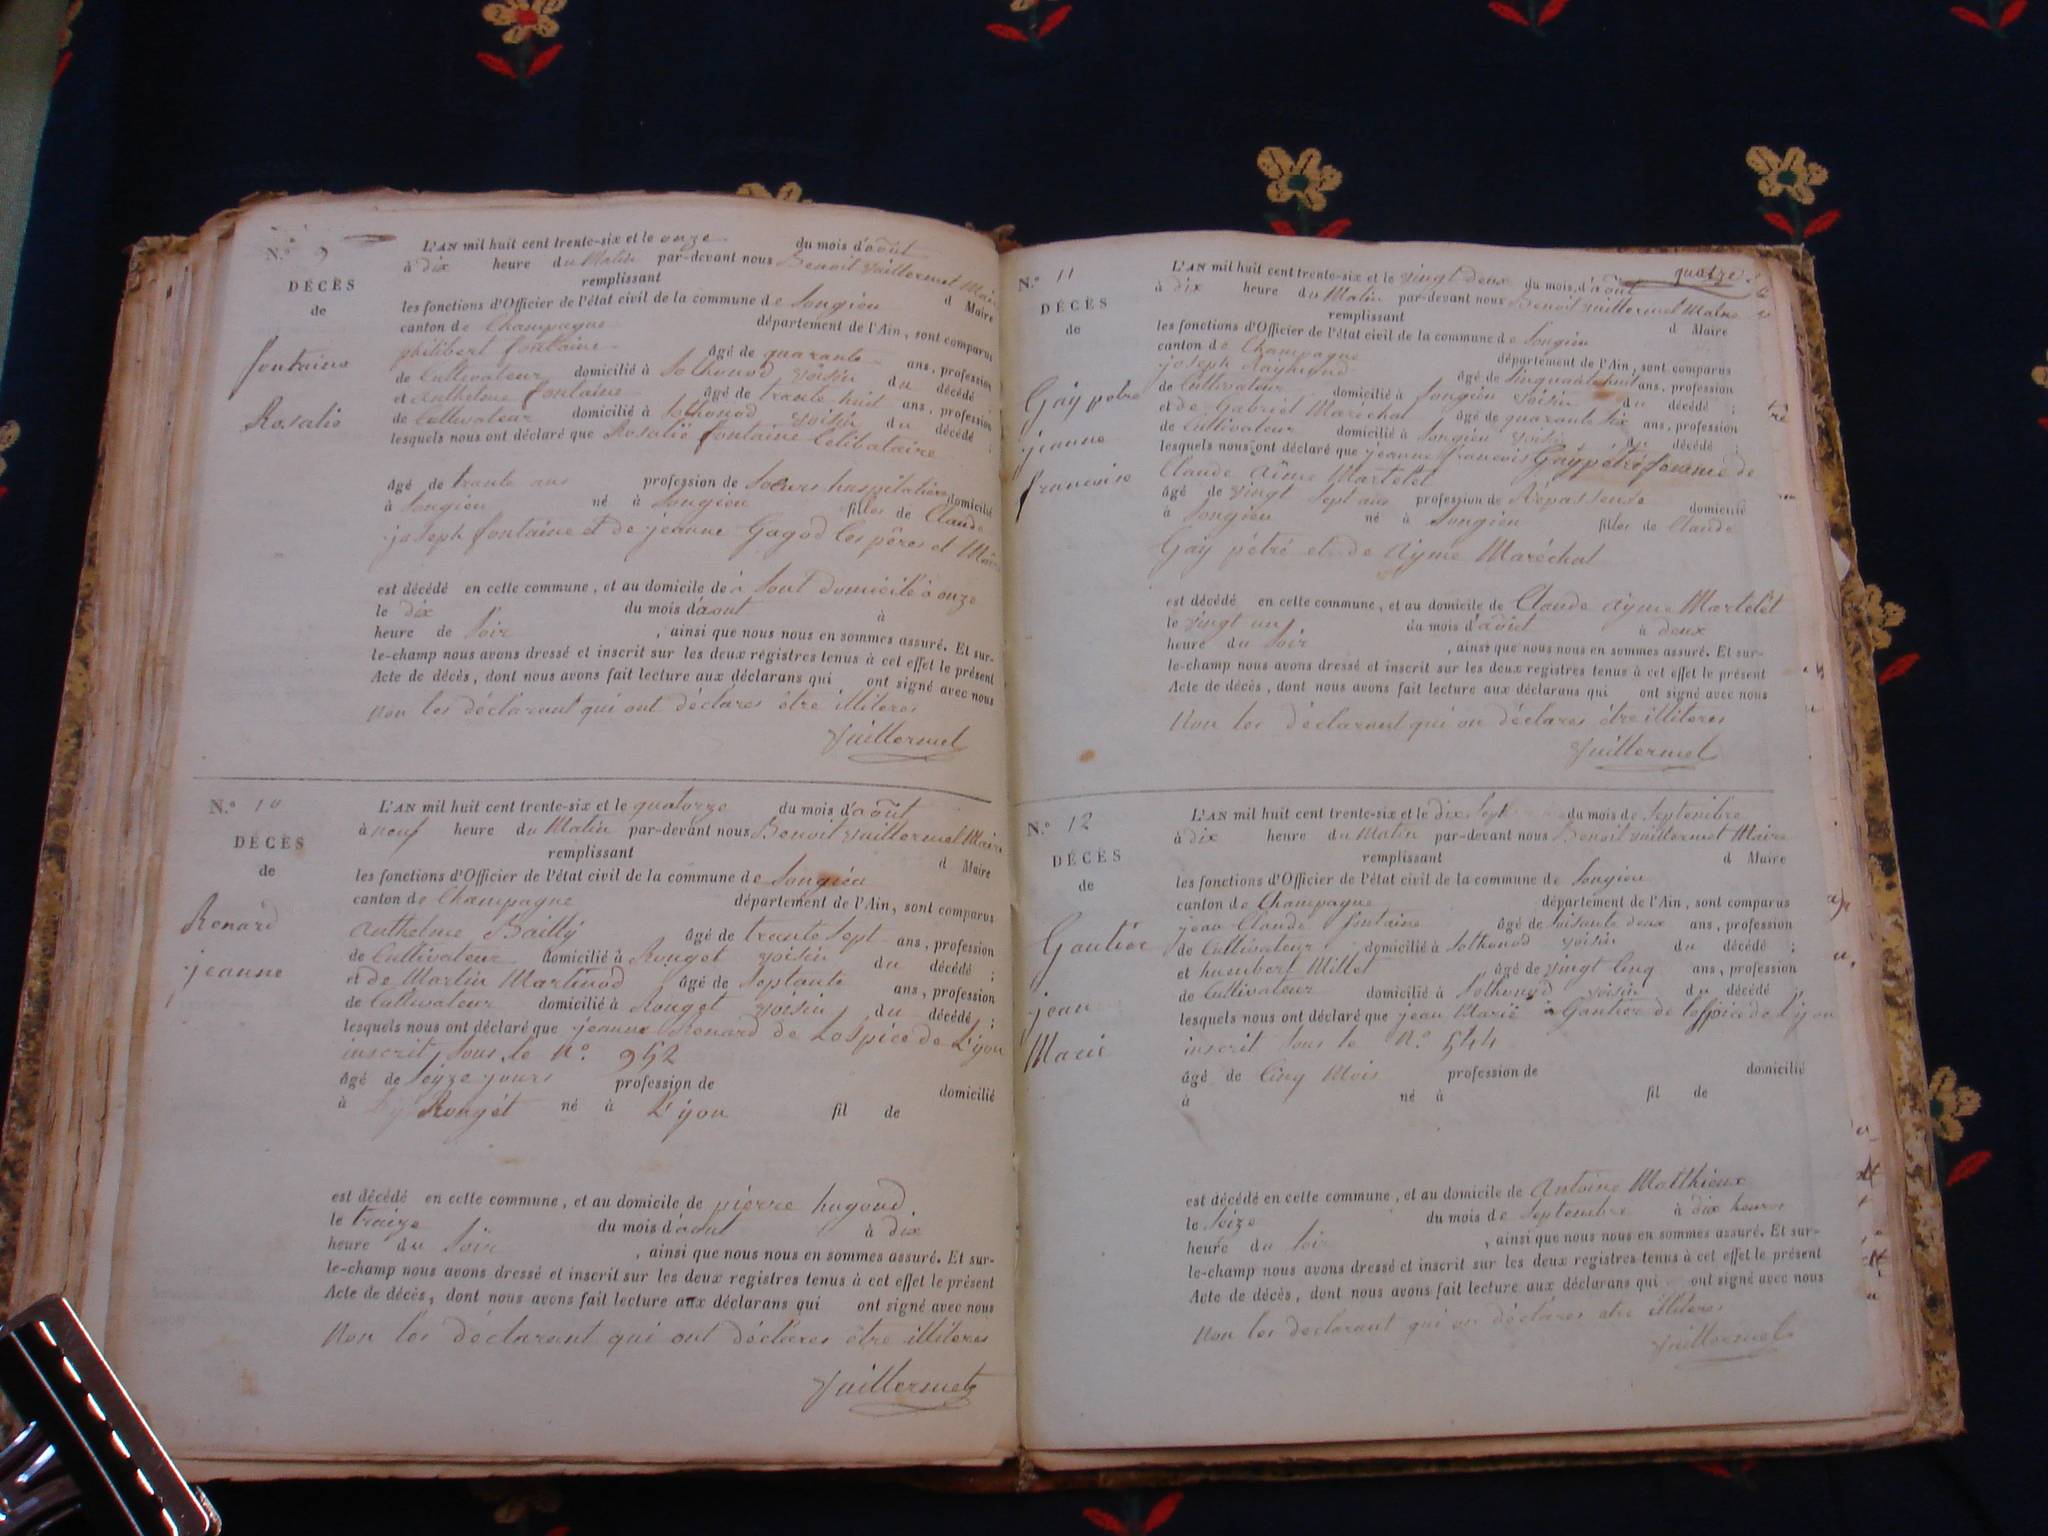 N.° 9
L'AN mil huit cent trente-six et le onze du mois d'août
à dix heure du Matin par-devant nous Benoit Vuillermet Maire
remplissant
d Maire
DÉCÈS
de
fontaine
Rosalie
les fonctions d'Officier de l'état civil de la commune de Songieu
canton de Champagne département de l'Ain, sont comparus
philibert fontaine âgé de quarante ans, profession
de Cultivateur domicilié à Sothonod voisin du décédé ;
et Anthelme fontaine âgé de trante huit ans, profession
de Cultivateur domicilié à Sothonod voisin du décédé ;
lesquels nous ont déclaré que Rosalie fontaine Celibataire
âgé de trante ans profession de Soeurs hospitalière domicilié
à Songieu né à Songieu filles de Claude
joseph fontaine et de jeanne Gagod les pères et Mères
est décédé en cette commune, et au domicile de à Sont domicile à onze
le dix du mois d'aout à
heure de Soir , ainsi que nous nous en sommes assuré. Et sur-
le-champ nous avons dressé et inscrit sur les deux registres tenus à cet effet le présent
Acte de décès, dont nous avons fait lecture aux déclarans qui ont signé avec nous
Non les déclarant qui ont déclares être illiteres
Vuillermet
N.° 10
L'AN mil huit cent trente-six et le quatorze du mois d'août
à neuf heure du Matin par-devant nous Benoit Vuillermet Maire
remplissant
d Maire
DÉCÈS
de
Renard
jeanne
les fonctions d'Officier de l'état civil de la commune de Songieu
canton de Champagne département de l'Ain, sont comparus
Anthelme Bailly âgé de trante Sept ans, profession
de Cultivateur domicilié à Rouget voisin du décédé ;
et de Martin Martinod âgé de Septante ans, profession
de Cultivateur domicilié à Rouget voisin du décédé ;
lesquels nous ont déclaré que jeanne Renard de Lospice de L'yon
inscrit Sous le N.° 952
âgé de Seyze jours profession de domicilié
à Rougét né à L'yon fil de
est décédé en cette commune, et au domicile de pierre hugoud
le traize du mois d'aout à dix
heure du Soir , ainsi que nous nous en sommes assuré. Et sur-
le-champ nous avons dressé et inscrit sur les deux registres tenus à cet effet le présent
Acte de décès, dont nous avons fait lecture aux déclarans qui ont signé avec nous
Non les déclarant qui ont déclares être illiteres
Vuillermet
quatre
N.° 11
L'AN mil huit cent trente-six et le vingt deux du mois d'août
à dix heure du Matin par-devant nous Benoit Vuillermet Maire
remplissant
d Maire
DÉCÈS
de
Gay pétré
jeanne
francoise
les fonctions d'Officier de l'état civil de la commune de Songieu
canton de Champagne département de l'Ain, sont comparus
joseph Raymond âgé de Sinquante huit ans, profession
de Cultivateur domicilié à Songieu voisin du décédé ;
et de Gabriel Maréchal âgé de quarante Six ans, profession
de Cultivateur domicilié à Songieu voisin du décédé ;
lesquels nous ont déclaré que jeanne francois Gay pétré femme de
Claude Aime Martelet
âgé de vingt Sept ans profession de Répasseuse domicilié
à Songieu né à Songieu filles de Claude
Gay pétré et de Ayme Maréchal
est décédé en cette commune, et au domicile de Claude Ayme Martelet
le vingt un du mois d'août à deux
heure du Soir , ainsi que nous nous en sommes assuré. Et sur-
le-champ nous avons dressé et inscrit sur les deux registres tenus à cet effet le présent
Acte de décès, dont nous avons fait lecture aux déclarans qui ont signé avec nous
Non les déclarant qui on déclares être illiteres
Vuillermet
N.° 12
L'AN mil huit cent trente-six et le dix Sept du mois de Septembre
à dix heure du Matin par-devant nous Benoit Vuillermet Maire
remplissant
d Maire
DÉCÈS
de
Gautier
jean
Marie
les fonctions d'Officier de l'état civil de la commune de Songieu
canton de Champagne département de l'Ain, sont comparus
jean Claude fontaine âgé de Soisante deux ans, profession
de Cultivateur domicilié à Sothonod voisin du décédé ;
et humbert Millet âgé de vingt Cinq ans, profession
de Cultivateur domicilié à Sothonod voisin du décédé ;
lesquels nous ont déclaré que jean Marie Gautier de Lospice de L'yon
inscrit Sous le N.° 544
âgé de Cinq Mois profession de domicilié
à né à fil de
est décédé en cette commune, et au domicile de Antoine Matthieux
le Seize du mois de Septembre à dix heures
heure du Soir , ainsi que nous nous en sommes assuré. Et sur-
le-champ nous avons dressé et inscrit sur les deux registres tenus à cet effet le présent
Acte de décès, dont nous avons fait lecture aux déclarans qui ont signé avec nous
Non les declarant qui on déclares etre illiteres
Vuillermet